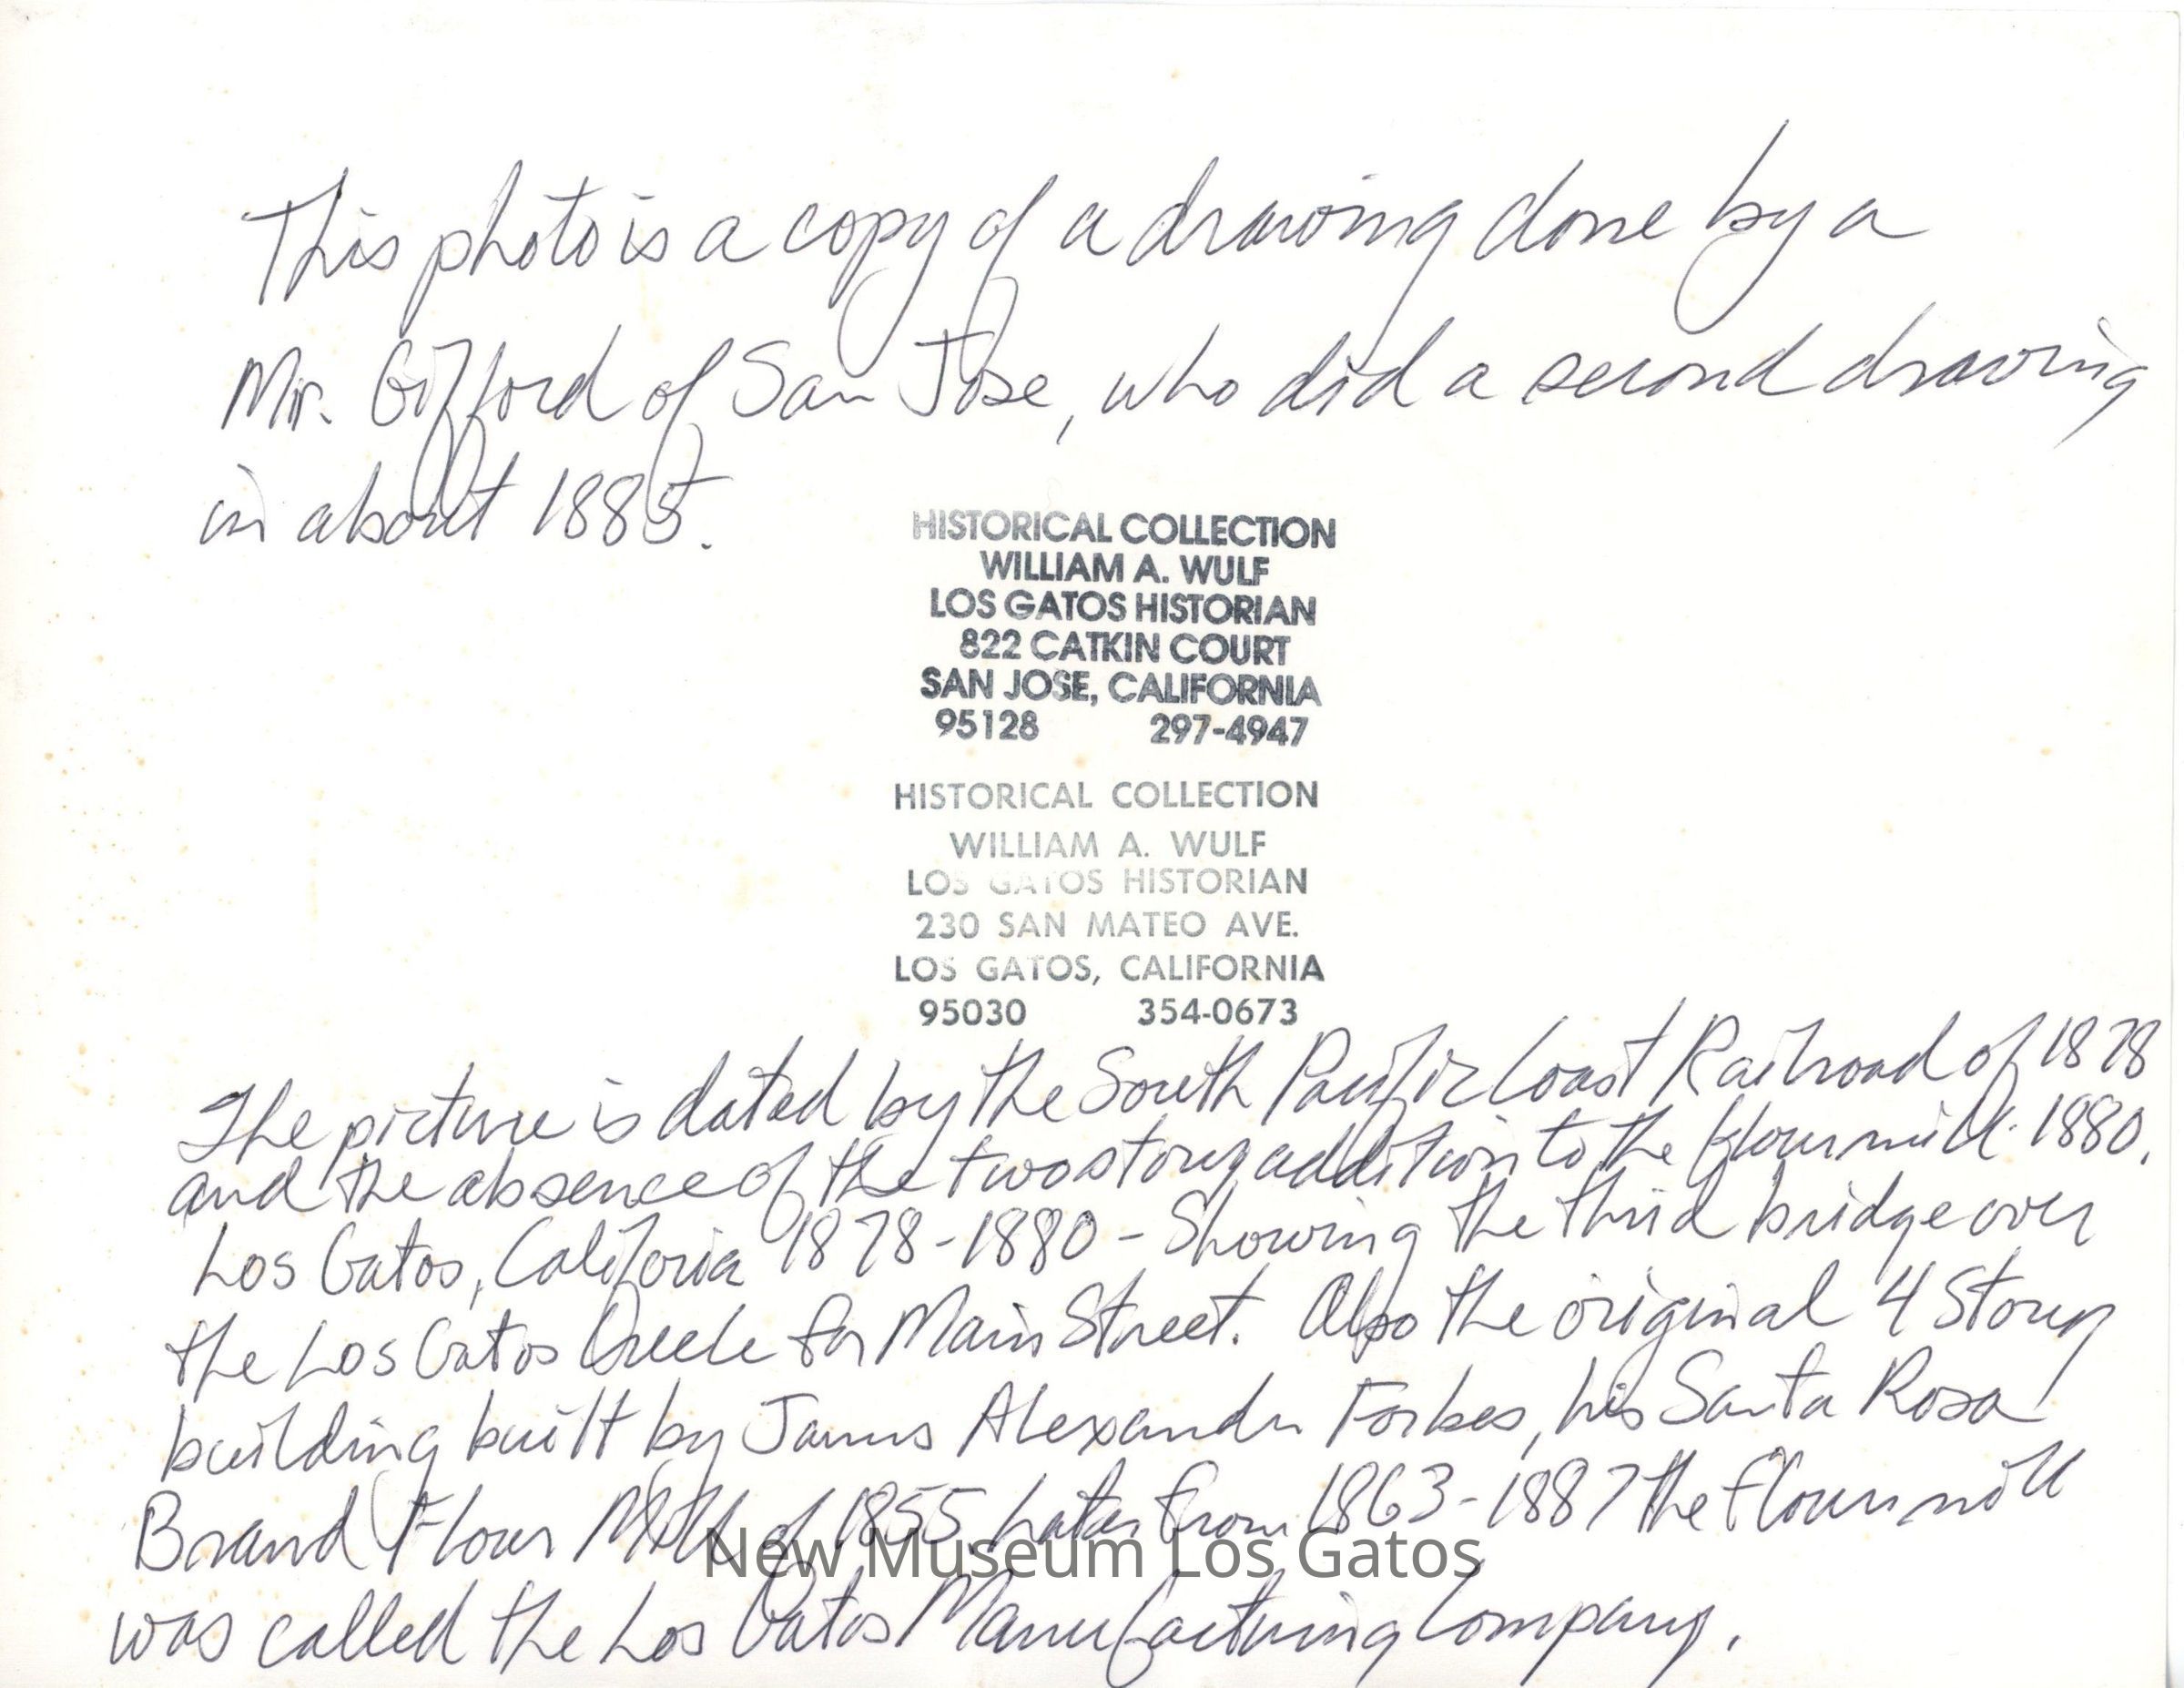 This photo is a copy of a drawing done by a
Mr. Gifford of San Jose, who did a second drawing
in about 1885.
HISTORICAL COLLECTION
WILLIAM A. WULF
LOS GATOS HISTORIAN
822 CATKIN COURT
SAN JOSE, CALIFORNIA
95128 297-4947
HISTORICAL COLLECTION
WILLIAM A. WULF
LOS GATOS HISTORIAN
230 SAN MATEO AVE.
LOS GATOS, CALIFORNIA
95030 354-0673
The picture is dated by the South Pacific Coast Railroad of 1878
and the absence of the two story addition to the flour mill. 1880.
Los Gatos, Califoria 1878-1880 - Showing the third bridge over
the Los Gatos Creek for Main Street. Also the original 4 Story
building built by James Alexander Forbes, his Santa Rosa
Brand Flour Mill of 1855. Later from 1863-1887 the flour mill
was called the Los Gatos Manufacturing Company.
New Museum Los Gatos